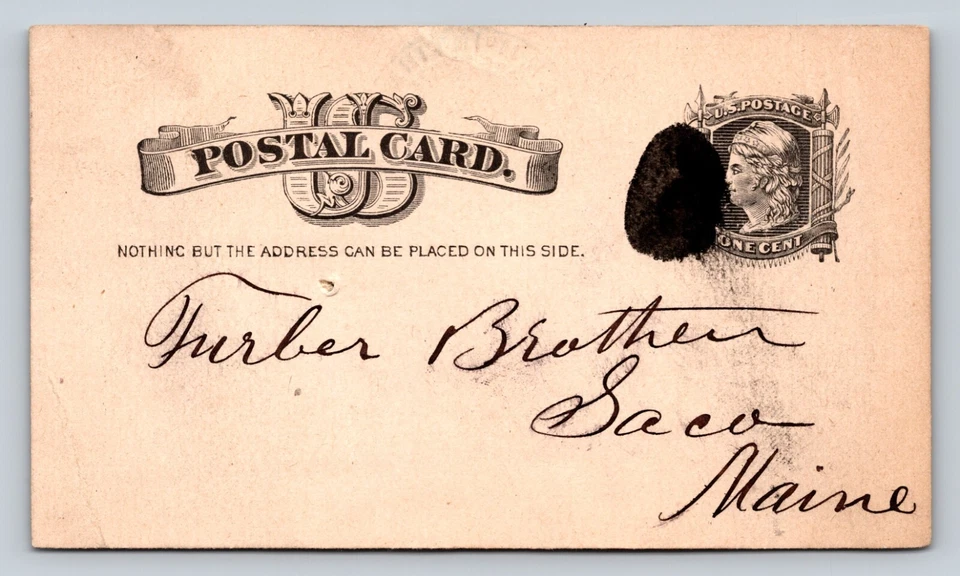 US
POSTAL CARD.
U.S. POSTAGE
ONE CENT
NOTHING BUT THE ADDRESS CAN BE PLACED ON THIS SIDE.
Furber Brothers
Saco
Maine